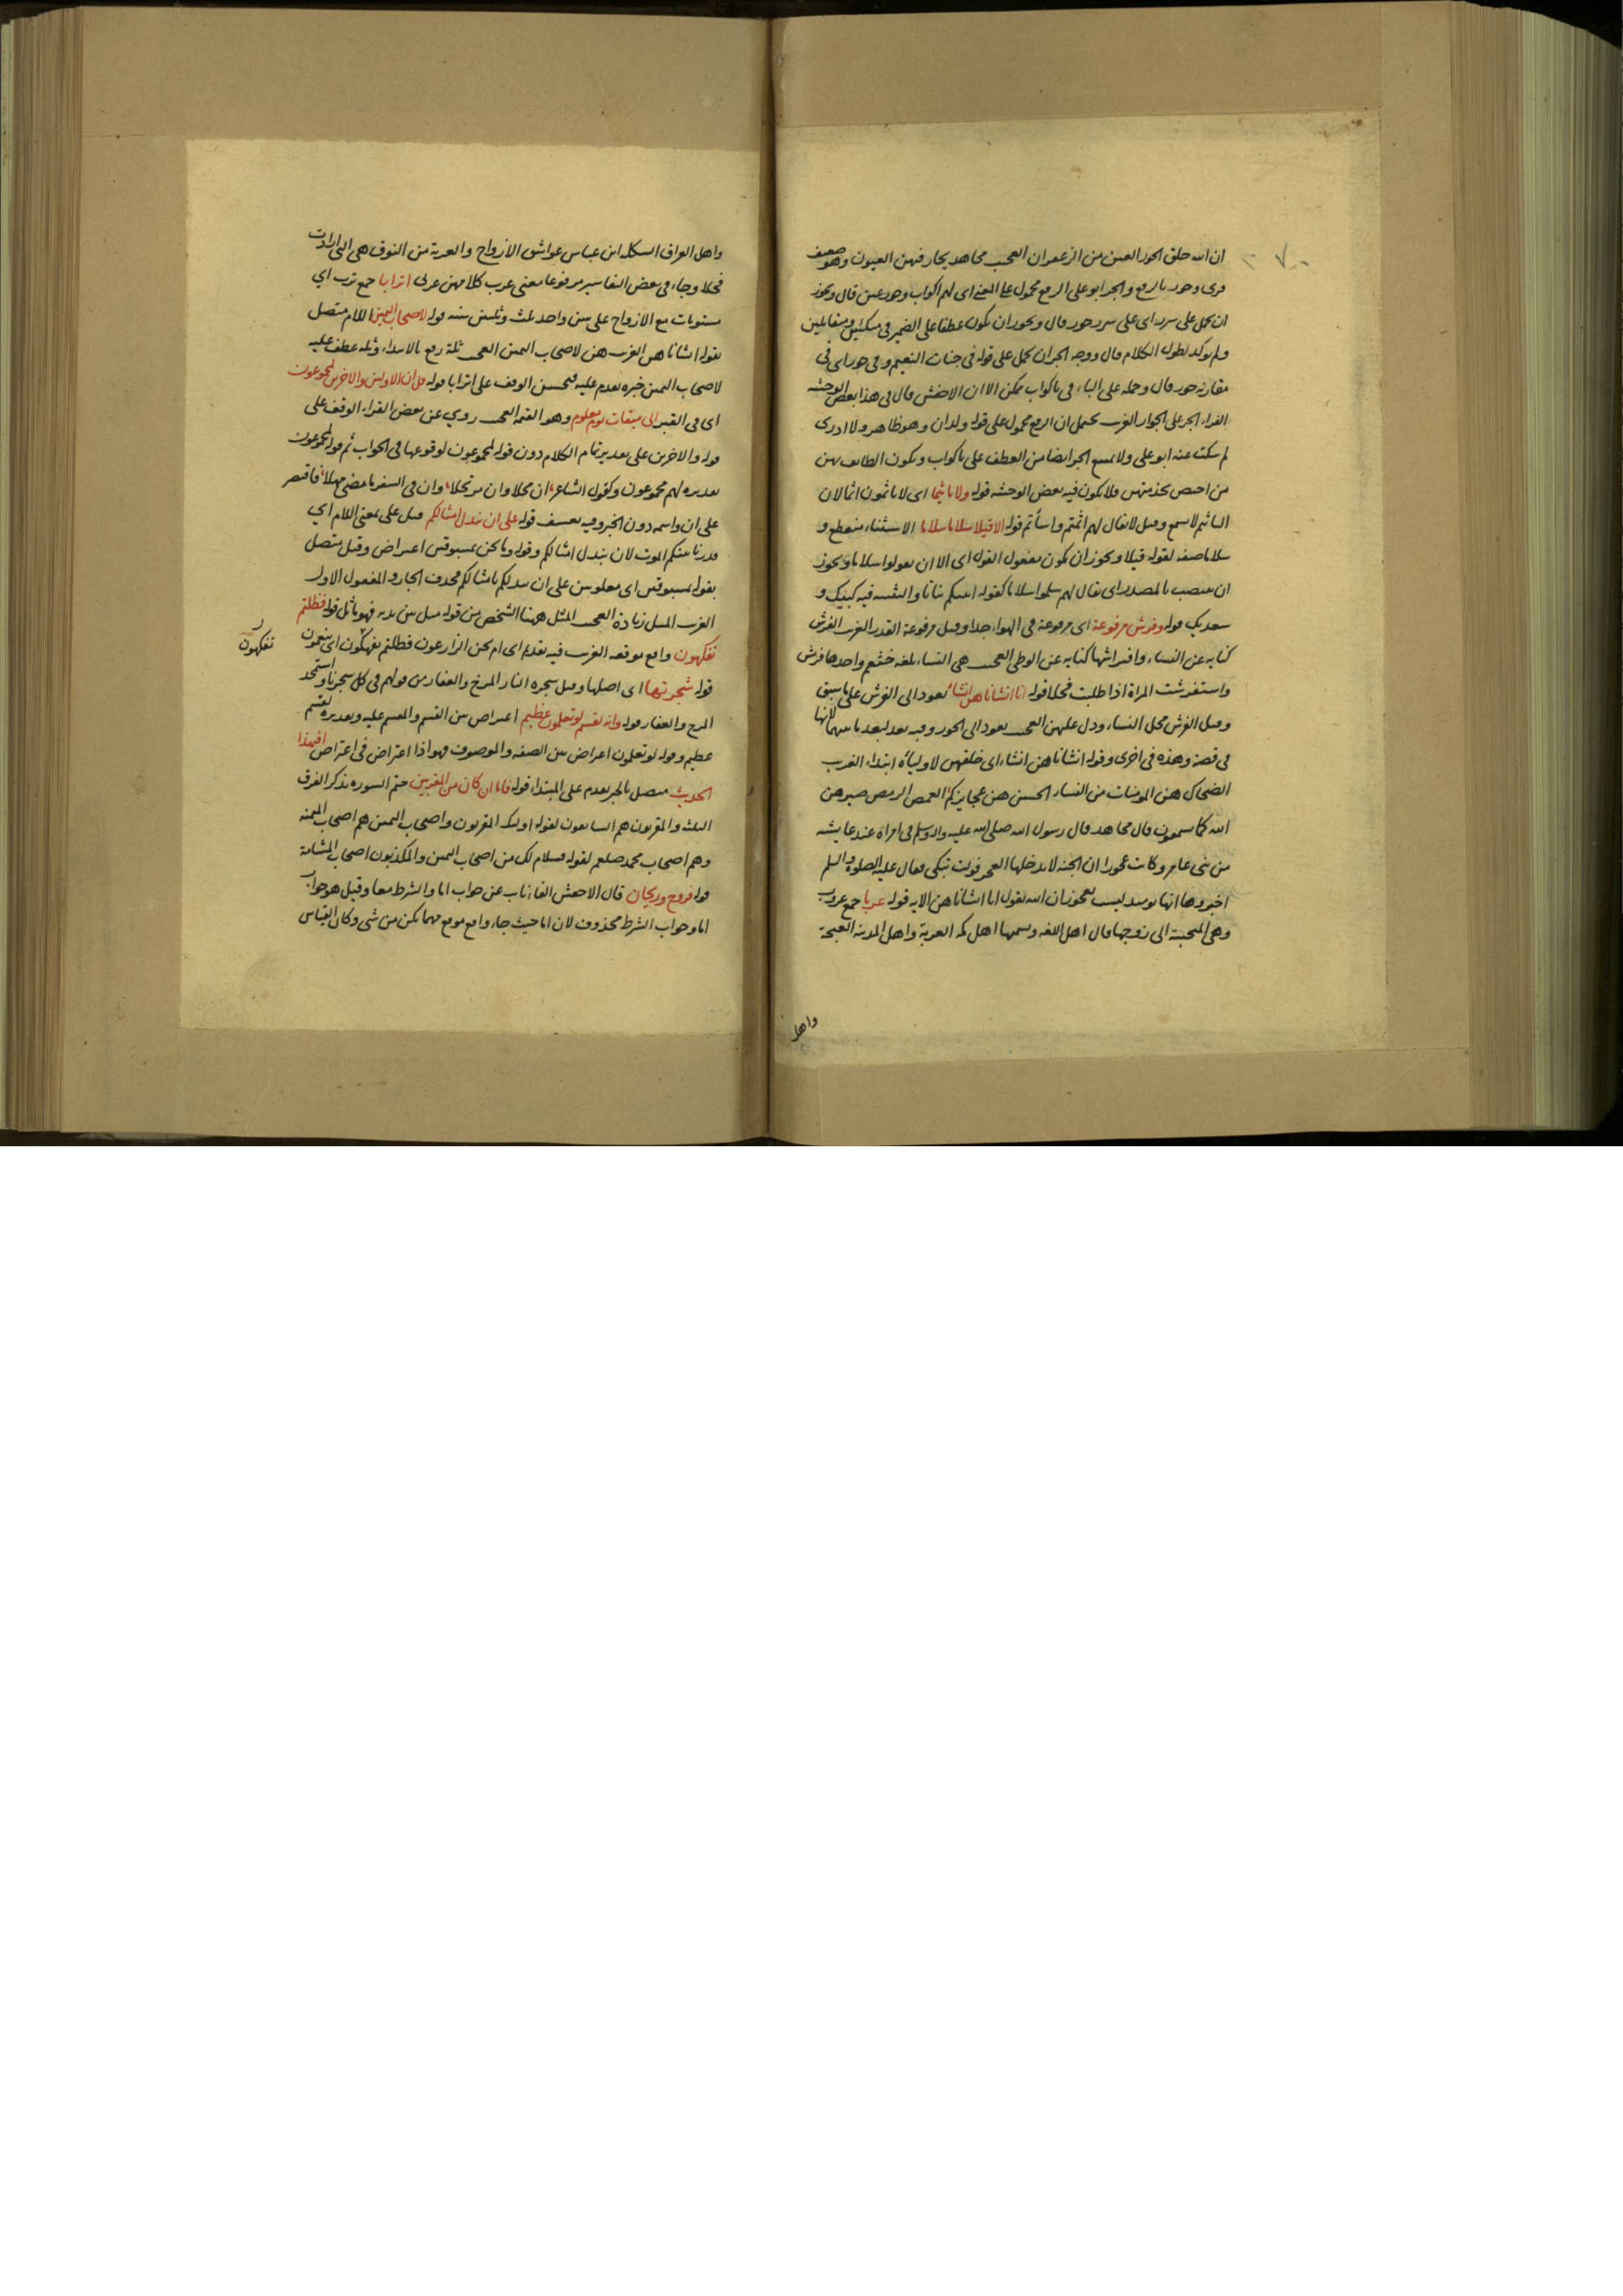 ٧٠٠
ان الله خلق الحور العين من الزعفران العجيب مجاهد يحار فيهن العيون وهو ضعيف
قرى وحور بالرفع والجر ابو على الرفع محمول على المعنى اى لهم اكواب وحور عين قال ويجوز
ان يحمل على سرر اى على سرر حور قال ويجوز ان يكون عطفا على الضمير فى متكئين ومتقابلين
ولم يوكد لطول الكلام قال ووجه الجر ان يحمل على قوله فى جنات النعيم وفى حور اى فى
مقارنة حور قال وحمله على الباء فى باكواب ممكن الا ان الاخفش قال فى هذا بعض الوحشه
الفراء الجر على الجوار الغريب يحتمل ان الرفع محمول على قوله ولدان وهو ظاهر ولا ادرى
لم سكت عنه ابو على ولا يمتنع الجر ايضا من العطف على باكواب ويكون الطائف بهن
من اختص بخدمتهن فلا يكون فيه بعض الوحشه قوله ولا تاثيما اى لا ياثمون اثما لان
التاثيم لا يسمع وقيل لا يقال لهم اثمتم واسأتم قوله الا قيلا سلاما سلاما الاستثناء منقطع و
سلاما صفه لقوله قيلا ويجوز ان يكون مفعول القول اى الا ان يقولوا سلاما ويجوز
ان ينتصب بالمصدر اى يقال لهم سلموا سلاما كقوله انبتكم نباتا والتثنيه فيه كلبيك و
سعديك قوله وفرش مرفوعة اى مرفوعة فى الهواء جدا وقيل مرفوعة القدر الغريب الفرش
كناية عن النساء وافتراشها كناية عن الوطى العجيب هى النساء بلغة خثعم واحدها فرش
واستفرشت المرأة اذا طلبت فحلا قوله انا انشاناهن انشاء يعود الى الفرش على ما سبق
وقيل الفرش محل النساء ودل عليهن العجيب يعود الى الحور وفيه بعد لبعد ما بينهما لانها
فى قصة وهذه فى اخرى وقوله انشاناهن انشاء اى خلقهن لاوليائه ابتداء الغريب
الضحاك هن المومنات من النساء الحسن هن عجايزكم العمص الرمص صيرهن
الله كما تسمعون قال مجاهد قال رسول الله صلى الله عليه واله وسلم فى امراة عند عايشه
من بنى عامر وكانت عجوزا ان الجنة لا يدخلها العجز فولت تبكى فقال عليه الصلوة والسلم
اخبروها انها يومئذ ليست بعجوز ان الله يقول انا انشاناهن الاية قوله عربا جمع عروب
وهى المتحببة الى زوجها قال اهل اللغه ويسميها اهل مكه العربة واهل المدينه الغنجة
واهل
واهل العراق الشكله ابن عباس عواشق الازواج والعربة من النوق هى التى ارادت
فحلا وجاء فى بعض التفاسير مرفوعا معنى عرب كلامهن عربى اترابا جمع ترب اي
مستويات مع الازواج على سن واحد ثلث وثلثين سنه قوله لاصحاب اليمين اللام متصل
بقوله انشاناهن الغريب هن لاصحاب اليمين العجيب ثلة رفع بالابتداء وثله عطف عليه
لاصحاب اليمين خبره تقدم عليه فيحسن الوقف على اترابا قوله قل ان الاولين والاخرين لمجموعون
اى فى القبر الى ميقات يوم معلوم وهو القيمه العجيب روي عن بعض القراء الوقف على
قوله والاخرين على تقدير تمام الكلام دون قوله لمجموعون لوقوعها فى الجواب ثم قوله لمجموعون
تقديره لهم مجموعون وكقول الشاعر ان محلا وان مرتحلا وان فى السفر ما مضى مهلا فاقتصر
على ان واسمه دون الخبر وفيه تعسف قوله على ان نبدل امثالكم قيل على بمعنى اللام اي
قدرنا بينكم الموت لان نبدل امثالكم وقوله وما نحن بمسبوقين اعتراض وقيل متصل
بقوله بمسبوقين اى مغلوبين على ان نبدلكم بامثالكم فحذف الجار والمفعول الاول
الغريب المثل زيادة العجيب المثل ههنا الشخص من قوله مثل بين يديه فهو ماثل قوله فظلتم
تفكهون واقع موقعه الغريب فيه تقديم اى ام نحن الزارعون فظلتم تفكهون اى تنعمون
تفكهون
قوله شجرتها اى اصلها وقيل شجره النار المرخ والعفار من قولهم فى كل شجر نار واستمجد
المرخ والعفار قوله وانه لقسم لو تعلمون عظيم اعتراض بين القسم والمقسم عليه وتقديره لقسم
عظيم وقوله لو تعلمون اعتراض بين الصفه والموصوف فهو اذا اعتراض فى اعتراض افبهذا
الحديث متصل بالخبر تقدم على المبتداء قوله فاما ان كان من المقربين ختم السوره بذكر الفرق
الثلث والمقربون هم السابقون لقوله اولئك المقربون واصحاب اليمين هم اصحاب الميمنه
وهم اصحاب محمد صلعم لقوله فسلام لك من اصحاب اليمين والمكذبون اصحاب المشامة
قوله فروح وريحان قال الاخفش الفاء ناب عن جواب اما والشرط معا وقيل هو جواب
اما وجواب الشرط محذوف لان اما حيث جاء واقع موقع مهما يكن من شى وكان القياس